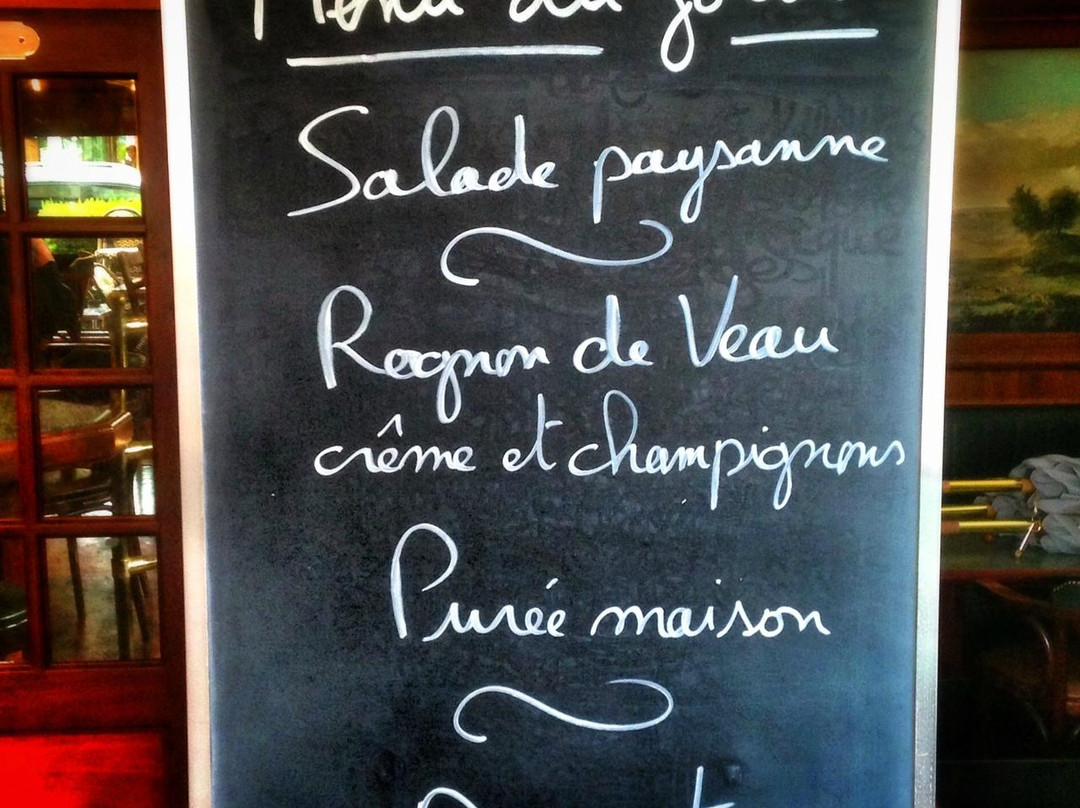 Menu du jour
Salade paysanne
Rognon de Veau
crême et champignons
Purée maison